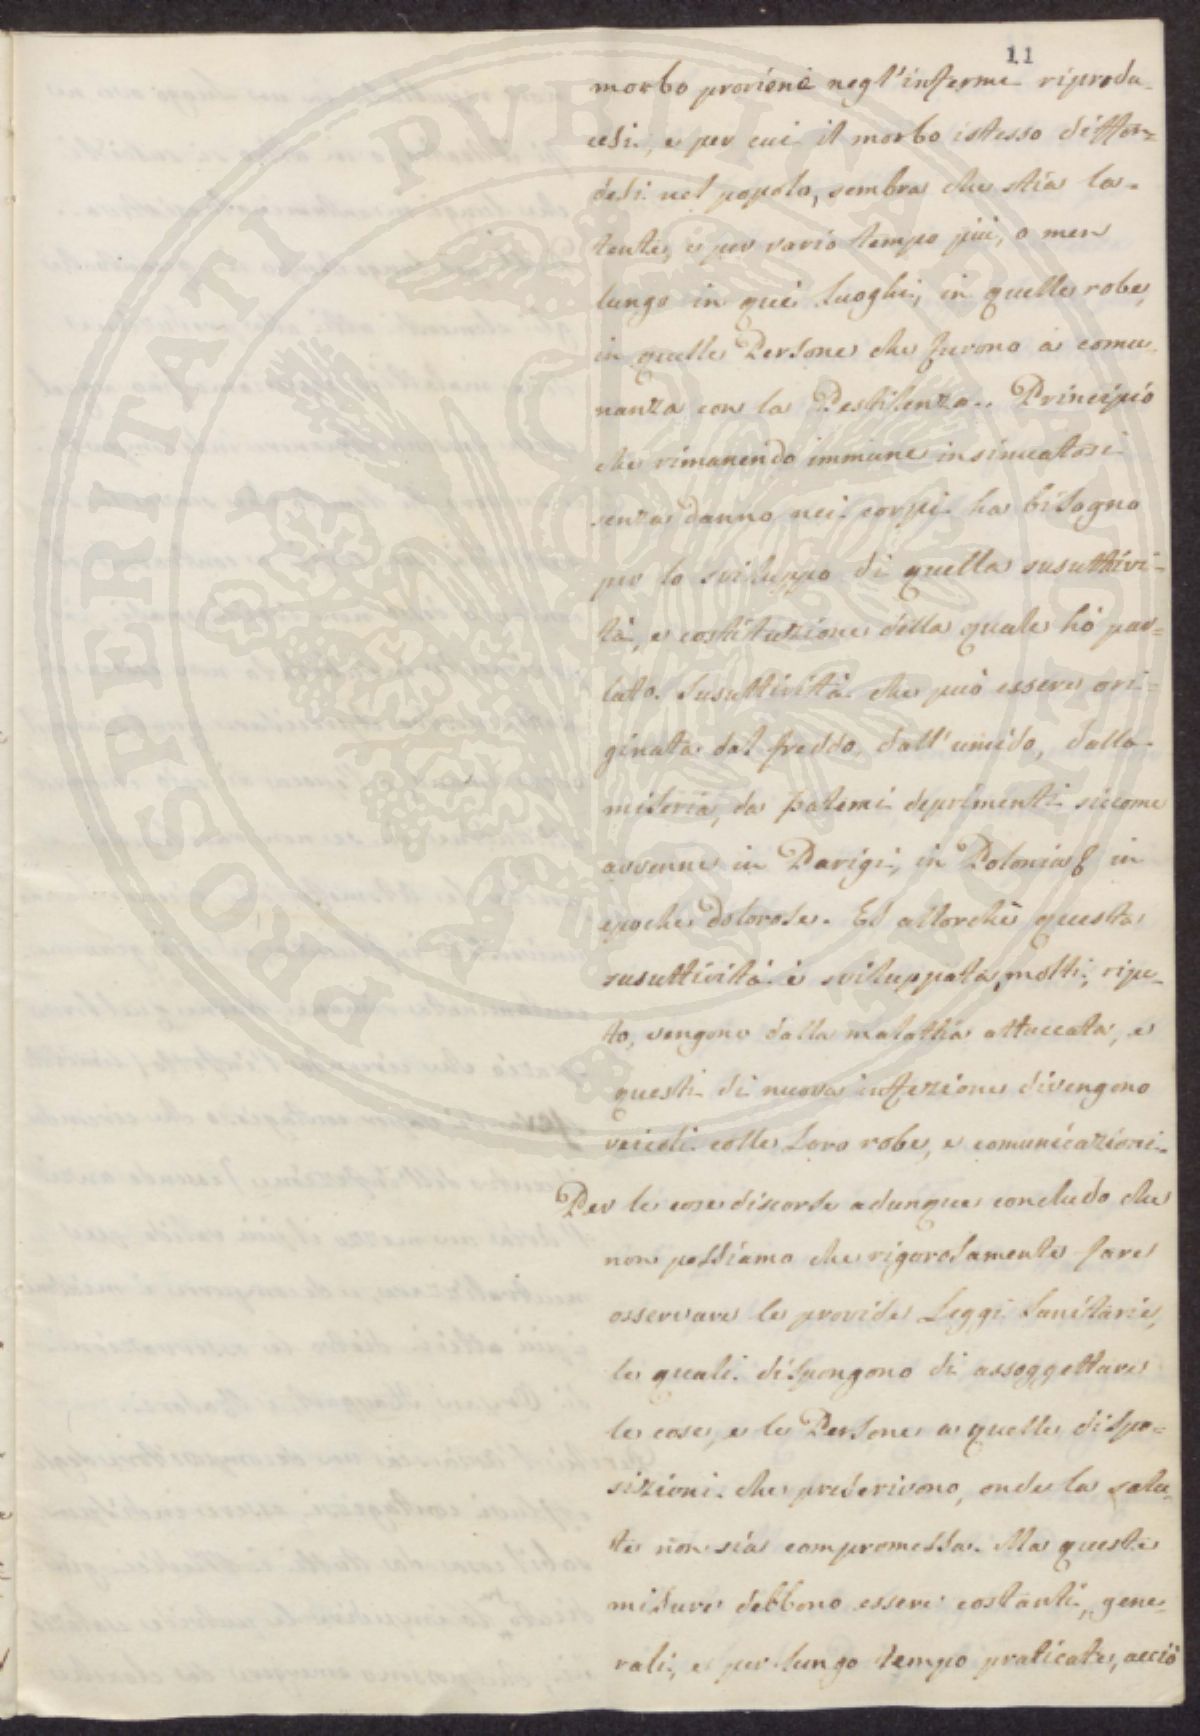 11
morbo proviene negl'infermi riprodu-
cesi, e per cui il morbo istesso diffon=
desi nel popolo, sembra che stia la-
tente, e per vario tempo più, o men
lungo in quei Luoghi, in quelle robe,
in quelle Persone che furono a comu-
nanza con la Pestilenza.. Principio
che rimanendo immune insinuatosi
senza danno nei corpi ha bisogno
per lo sviluppo di quella susuttivi=
tà, e costituzione della quale hò par=
lato. Susuttività che può essere ori=
ginata dal freddo, dall'umido, dalla
miseria, da patemi deprimenti siccome
avvenne in Parigi, in Polonia in
epoche dolorose. Ed allorchè questa
susuttività è sviluppata, molti, ripe-
to, vengono dalla malattia attaccata, e
questi di nuova infezione divengono
veicoli colle Loro robe, e comunicazioni.
Per le cose discorse adunque concludo che
non possiamo che rigorosamente fare
osservare le provide Leggi Sanitarie,
le quali dispongono di assoggettare
le cose, e le Persone a quelle dispo=
sizioni che prescrivono, onde la salu-
te non sia compromessa. Ma queste
misure debbono essere costanti, gene=
rali, e per lungo tempo praticate, acciò
PROSPERITATI PVBLICAE AVGENDAE